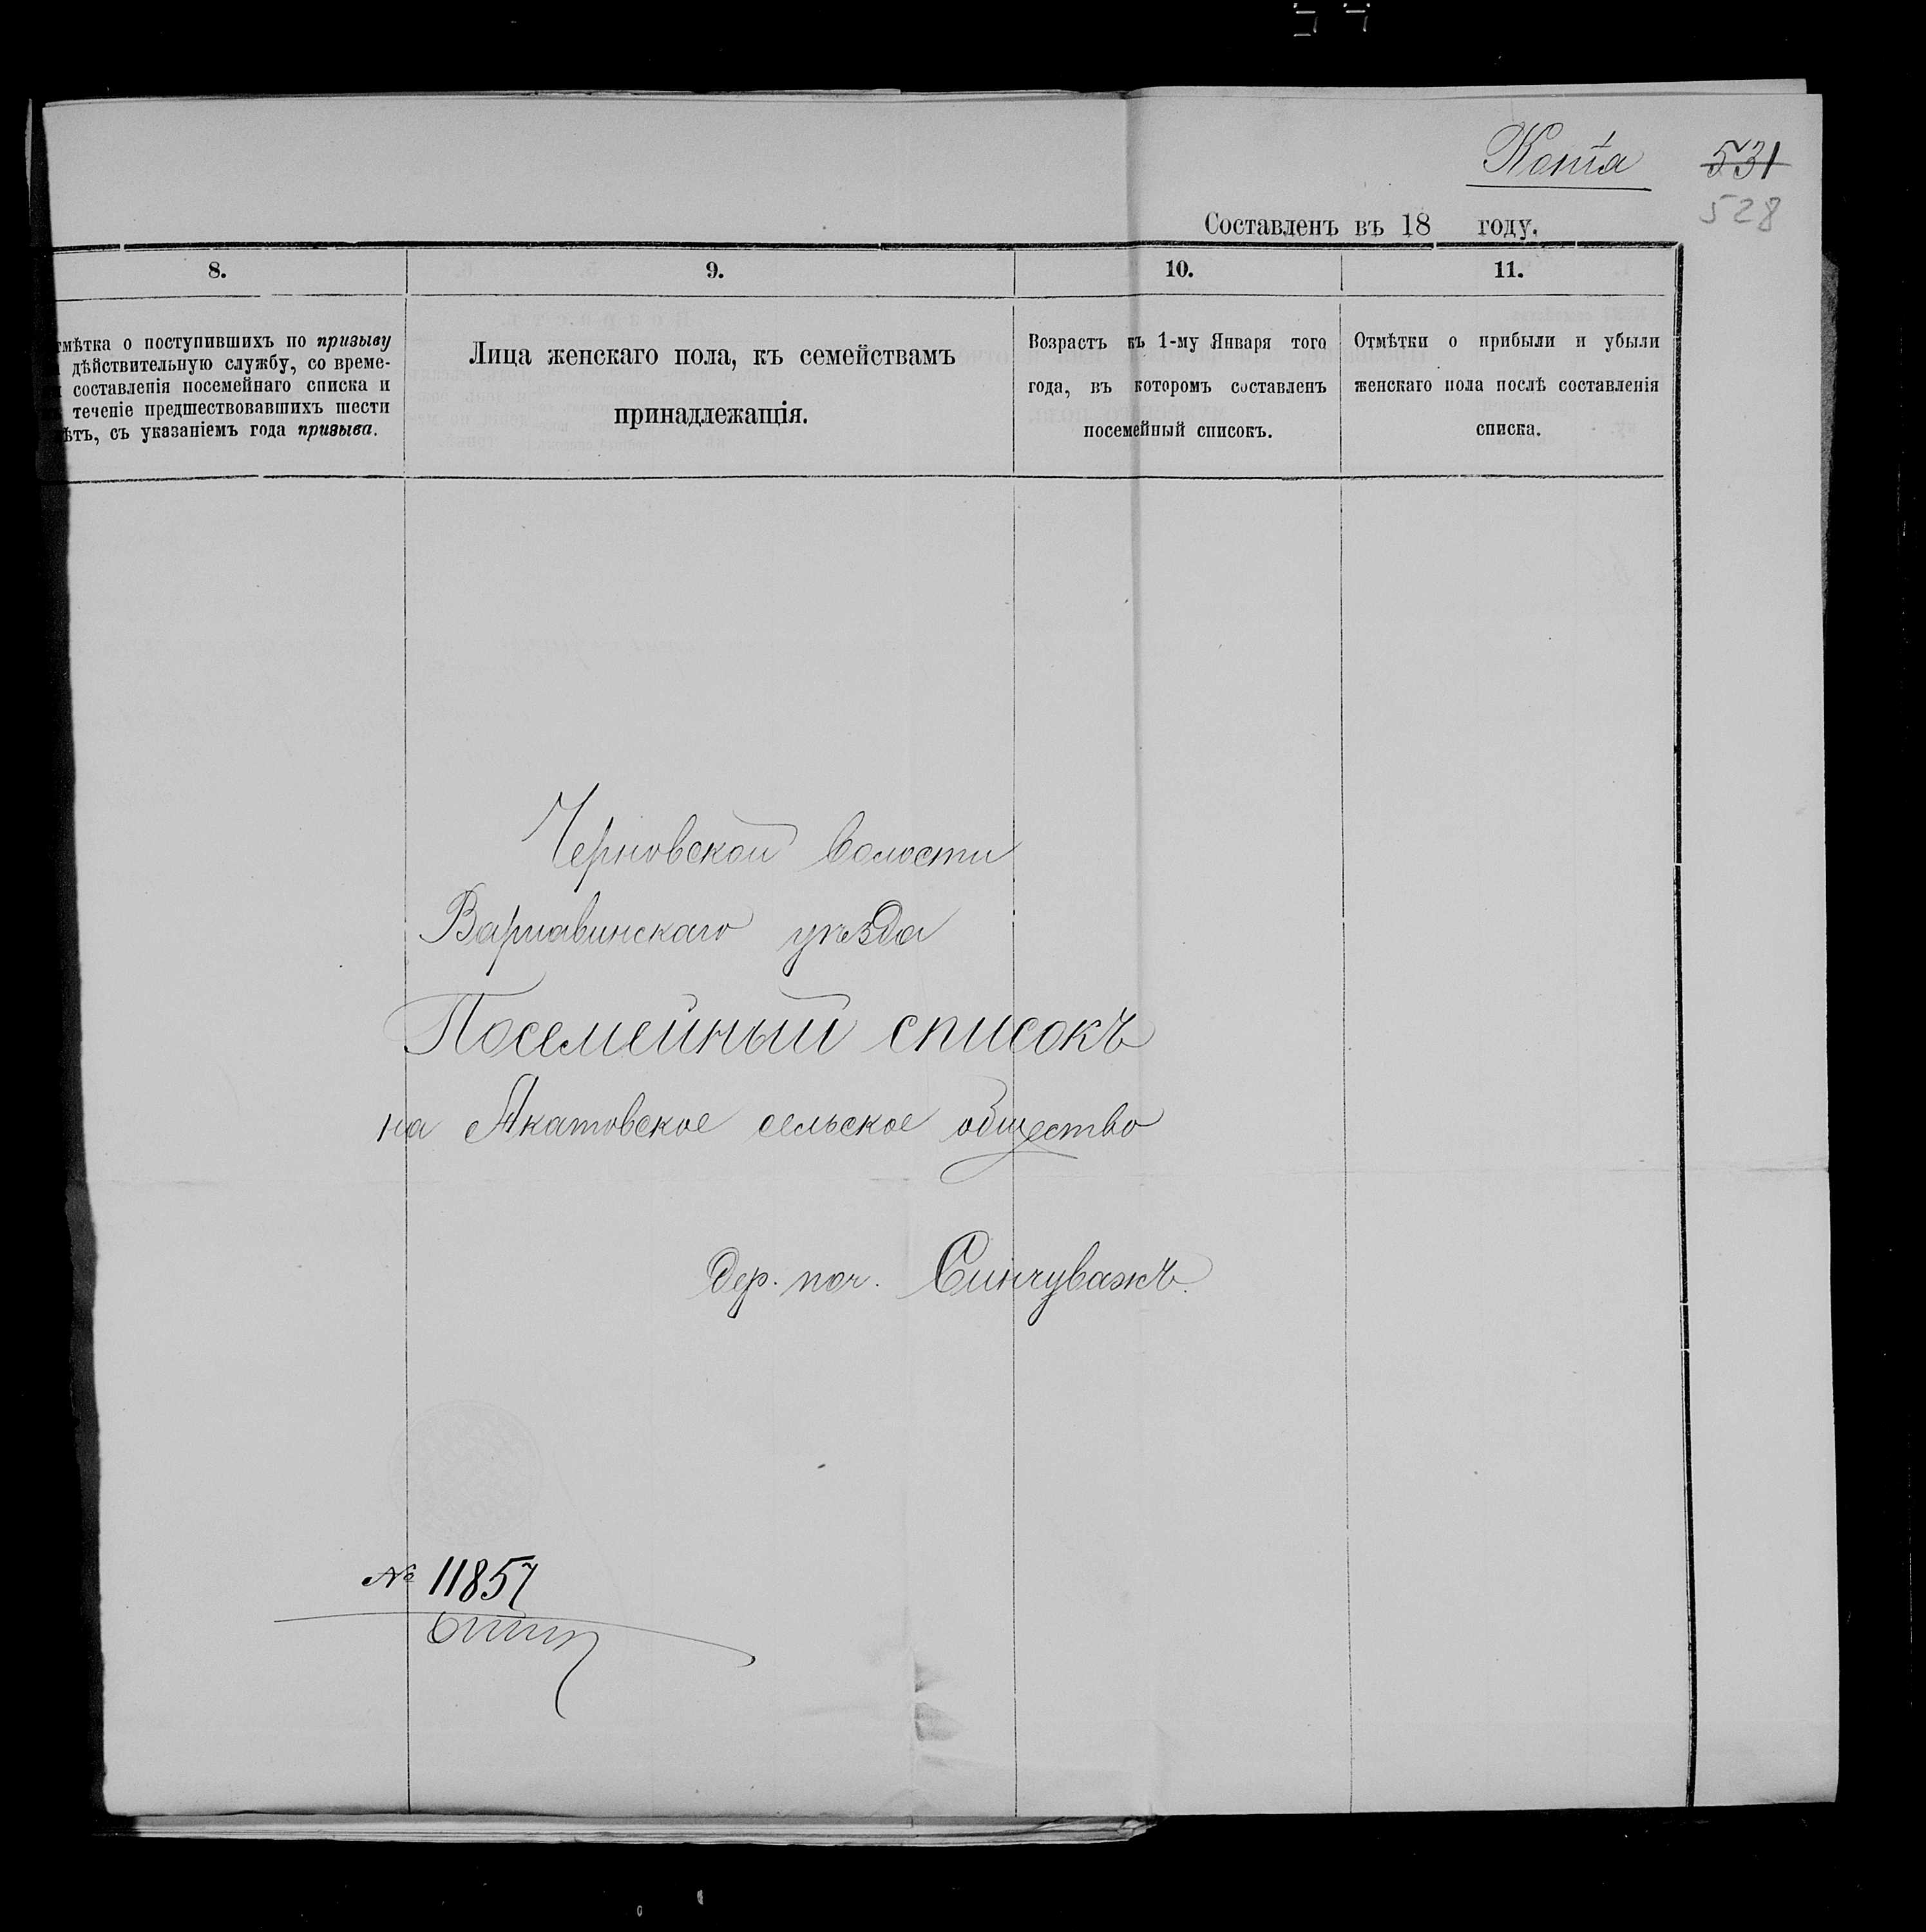 Копія
531
528
Составленъ въ 18 году.
8.
9.
10.
11.
тмѣтка о поступившихъ по призыву
дѣйствительную службу, со време-
составленія посемейнаго списка и
теченіе предшествовавшихъ шести
ѣтъ, съ указаніемъ года призыва.
Лица женскаго пола, къ семействамъ
принадлежащія.
Возрастъ къ 1-му Января того
года, въ которомъ составленъ
посемейный списокъ.
Отмѣтки о прибыли и убыли
женскаго пола послѣ составленія
списка.
Черновской волости
Варнавинскаго уѣзда
Посемейный списокъ
на Акатовское сельское общество
дер. поч. Синчуважъ.
№ 11857